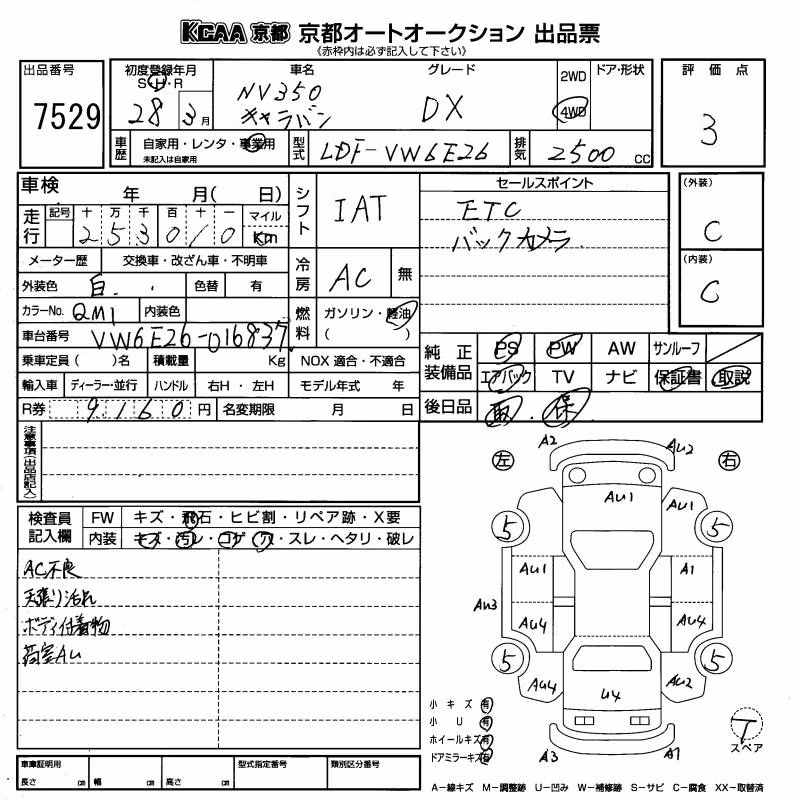 KCAA 京都 京都オートオークション 出品票
《赤枠内は必ず記入して下さい》
出品番号
7529
初度登録年月
S・H・R
28 3月
車名
NV350
キャラバン
グレード
DX
2WD
4WD
ドア・形状
評価点
3
車歴
自家用・レンタ・事業用
未記入は自家用
型式
LDF-VW6E26
排気
2500 CC
車検 年 月( 日)
走行
記号 十 万 千 百 十 一 マイル
253010 Km
シフト
IAT
セールスポイント
ETC
バックカメラ
(外装)
C
(内装)
C
メーター歴 交換車・改ざん車・不明車
冷房
AC 無
外装色 白. 色替 有
カラーNo. QM1 内装色
燃料
ガソリン・軽油
( )
車台番号 VW6E26-016837
乗車定員( )名 積載量 Kg NOX 適合・不適合
輸入車 ディーラー・並行 ハンドル 右H・左H モデル年式 年
R券 9,160 円 名変期限 月 日
純正装備品
PS PW AW サンルーフ
エアバック TV ナビ 保証書 取説
後日品 取.保
注意事項(出品店記入)
検査員記入欄
FW キズ・飛石・ヒビ割・リペア跡・X要
内装 キズ・汚レ・コゲ・穴・スレ・ヘタリ・破レ
AC不良
天張り汚れ
ボディ付着物
荷室AU
左 右
A2 AU2
AU1 AU1
5 5
AU1 A1
AU3
AU4 AU4
5 5
AU4 U4 AU2
A3 A1
小キズ 有
小U 有
ホイールキズ 有
ドアミラーキズ 有
T
スペア
車庫証明用
長さ cm 幅 cm 高さ cm
型式指定番号
類別区分番号
A−線キズ M−調整跡 U−凹み W−補修跡 S−サビ C−腐食 XX−取替済